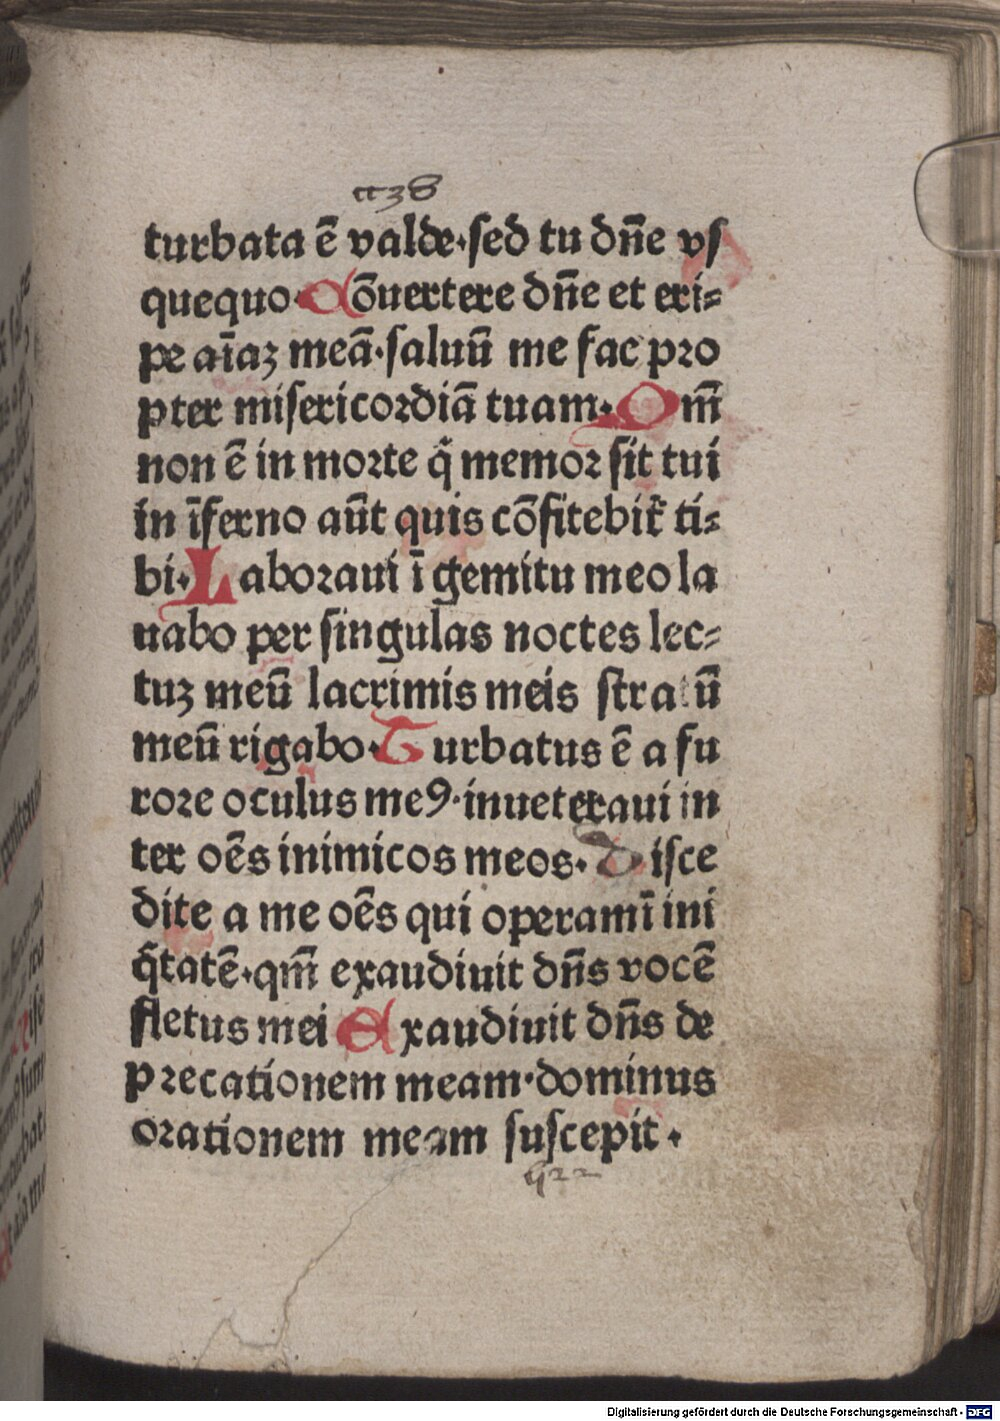 turbata ē valde·sed tu dn̄e vſ
quequo·Cōuertere dn̄e et eri⸗
pe aīaꝫ meā·ſaluū me fac pꝛo
pter miſericoꝛdiā tuam·Qm̄
non ē in moꝛte q̄ memoꝛ ſit tui
in īferno aūt quis cōfitebit̄ ti⸗
bi·Laboꝛaui ī gemitu meo la
uabo per ſingulas noctes lec⸗
tuꝫ meū lacrimis meis ſtratū
meū rigabo·Turbatus ē a fu
roꝛe oculus meꝰ·inueteraui in
ter oēs inimicos meos·Diſce
dite a me oēs qui operamī ini
q̄tatē·qm̄ exaudiuit dn̄s vocē
fletus mei Exaudiuit dn̄s de
pꝛecationem meam·dominus
oꝛationem meam ſuſcepit·
Digitalisierung gefördert durch die Deutsche Forschungsgemeinschaft - DFG